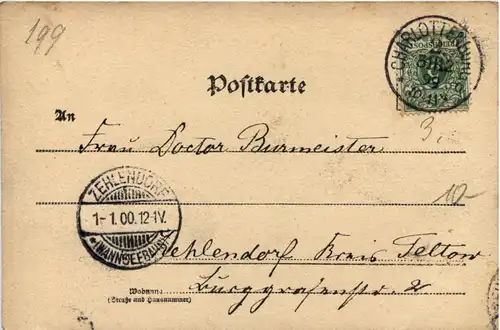 199
CHARLOTTENBURG
Postkarte
An
3,-
Frau Doctor Burmeister
ZEHLENDORF
1-1.00.12-1V.
* (WANNSEEBAHN)
10-
Zehlendorf Kreis Teltow
Wohnung
(Straße und Hausnummer)
Burggrafenstr. 2